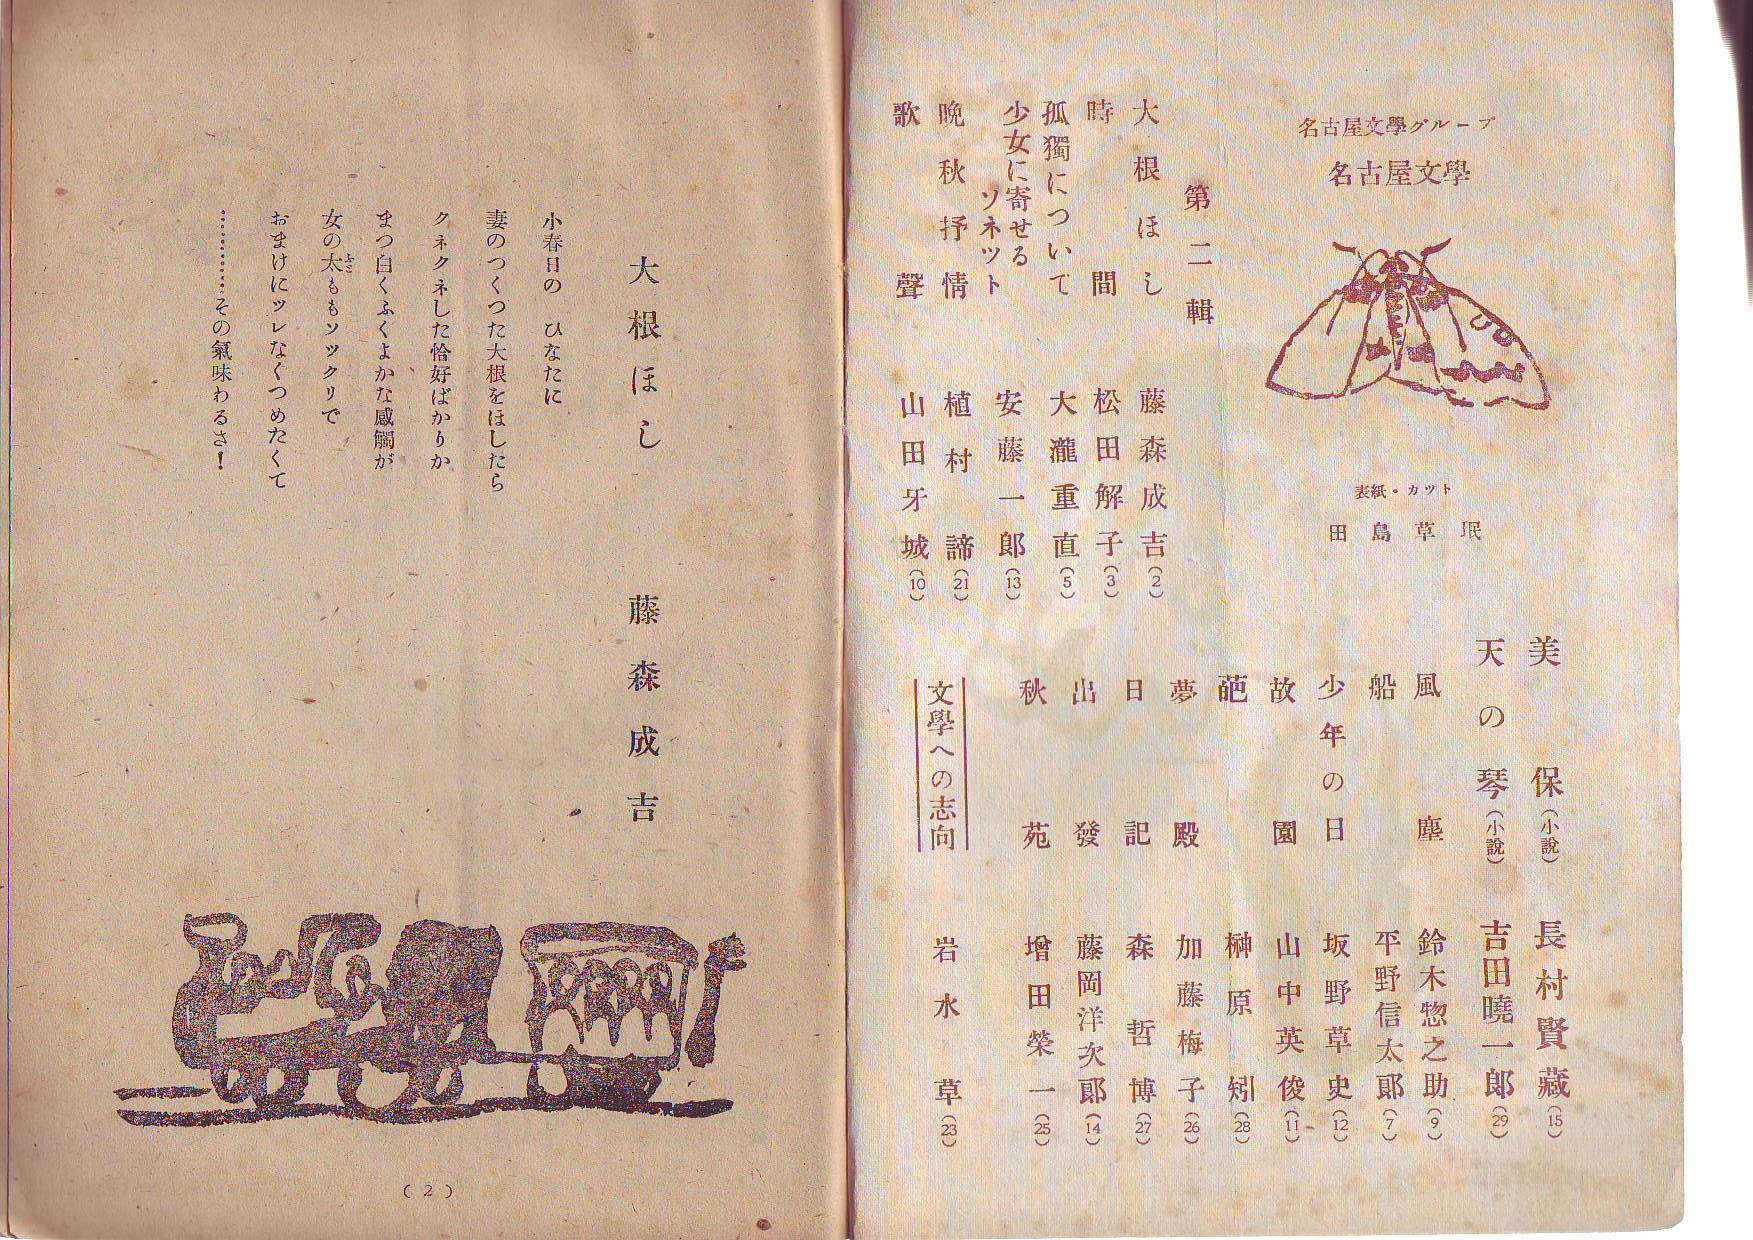 名古屋文學グループ
名古屋文學
表紙・カット
田島草珉
第二輯
大根ほし 藤森成吉(2)
時間 松田解子(3)
孤獨について 大瀧重直(5)
少女に寄せる
ソネット 安藤一郎(13)
晩秋抒情 植村諦(21)
歌聲 山田牙城(10)
美保(小説) 長村賢藏(15)
天の琴(小説) 吉田曉一郎(29)
風塵 鈴木惣之助(9)
船 平野信太郎(7)
少年の日 坂野草史(12)
故園 山中英俊(11)
葩 榊原矧(28)
夢殿 加藤梅子(26)
日記 森哲博(27)
出發 藤岡洋次郎(14)
秋苑 増田榮一(25)
文學への志向 岩水草(23)
大根ほし 藤森成吉
小春日の ひなたに
妻のつくつた大根をほしたら
クネクネした恰好ばかりか
まつ白くふくよかな感觸が
女の太ももソックリで
ふと
おまけにツレなくつめたくて
…………その氣味わるさ!
(2)